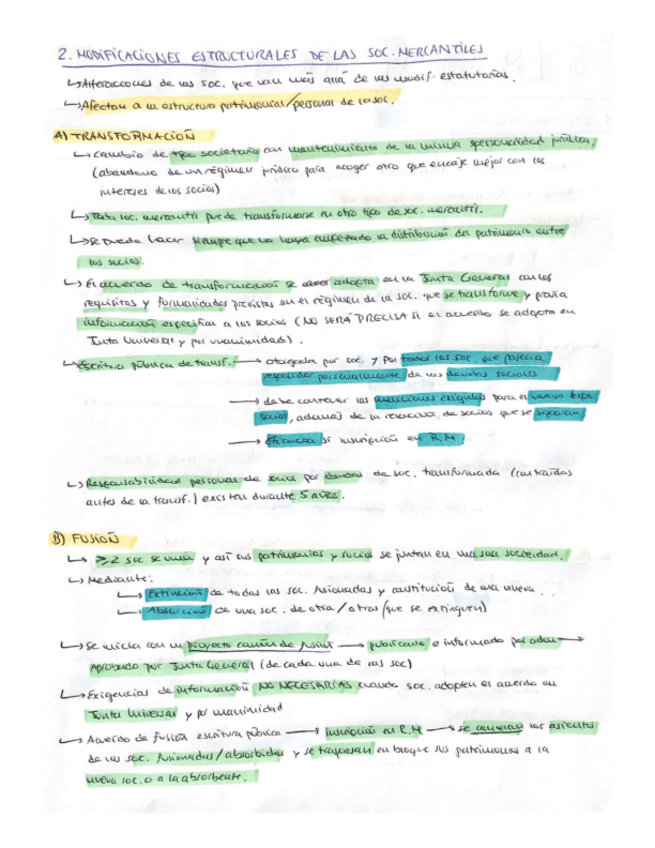 2. MODIFICACIONES ESTRUCTURALES DE LAS SOC. MERCANTILES
↳ Alteraciones de las soc. que van más allá de las modif. estatutarias.
↳ Afectan a la estructura patrimonial/personal de la soc.
A) TRANSFORMACIÓN
↳ cambio de tipo societario con mantenimiento de la misma personalidad jurídica.
(abandono de un régimen jurídico para acoger otro que encaje mejor con los
intereses de los socios)
↳ Toda soc. mercantil puede transformarse en otro tipo de soc. mercantil.
↳ se puede hacer siempre que no haya empezado la distribución del patrimonio entre
los socios.
↳ El acuerdo de transformación se adopta en la Junta General con los
requisitos y formalidades previstos en el régimen de la soc. que se transforme y previa
información específica a los socios (NO SERÁ PRECISA SI el acuerdo se adopta en
Junta Universal y por unanimidad).
↳ Escritura pública de transf. → otorgada por soc. y por todos los soc. que pasen a
responder personalmente de las deudas sociales
→ debe contener las menciones exigidas para el nuevo tipo
social, además de la relación de socios que se separan
→ Eficacia si inscripción en R.M
↳ Responsabilidad personal de socios por deudas de soc. transformada (contraídas
antes de la transf.) existen durante 5 años.
B) FUSIÓN
↳ ≥2 soc se unen y así sus patrimonios y socios se juntan en una sola sociedad.
↳ Mediante:
↳ Extinción de todas las soc. fusionadas y constitución de una nueva.
↳ Absorción de una soc. de otra/otras (que se extinguen)
↳ Se inicia con un proyecto común de fusión → publicado e informado por adm →
Aprobado por Junta General (de cada una de las soc)
↳ Exigencias de información NO NECESARIAS cuando soc. adopten el acuerdo en
Junta Universal y por unanimidad
↳ Acuerdo de fusión escritura pública → inscripción en R.M → se cancelan los asientos
de las soc. fusionadas/absorbidas y se traspasan en bloque sus patrimonios a la
nueva soc. o a la absorbente.